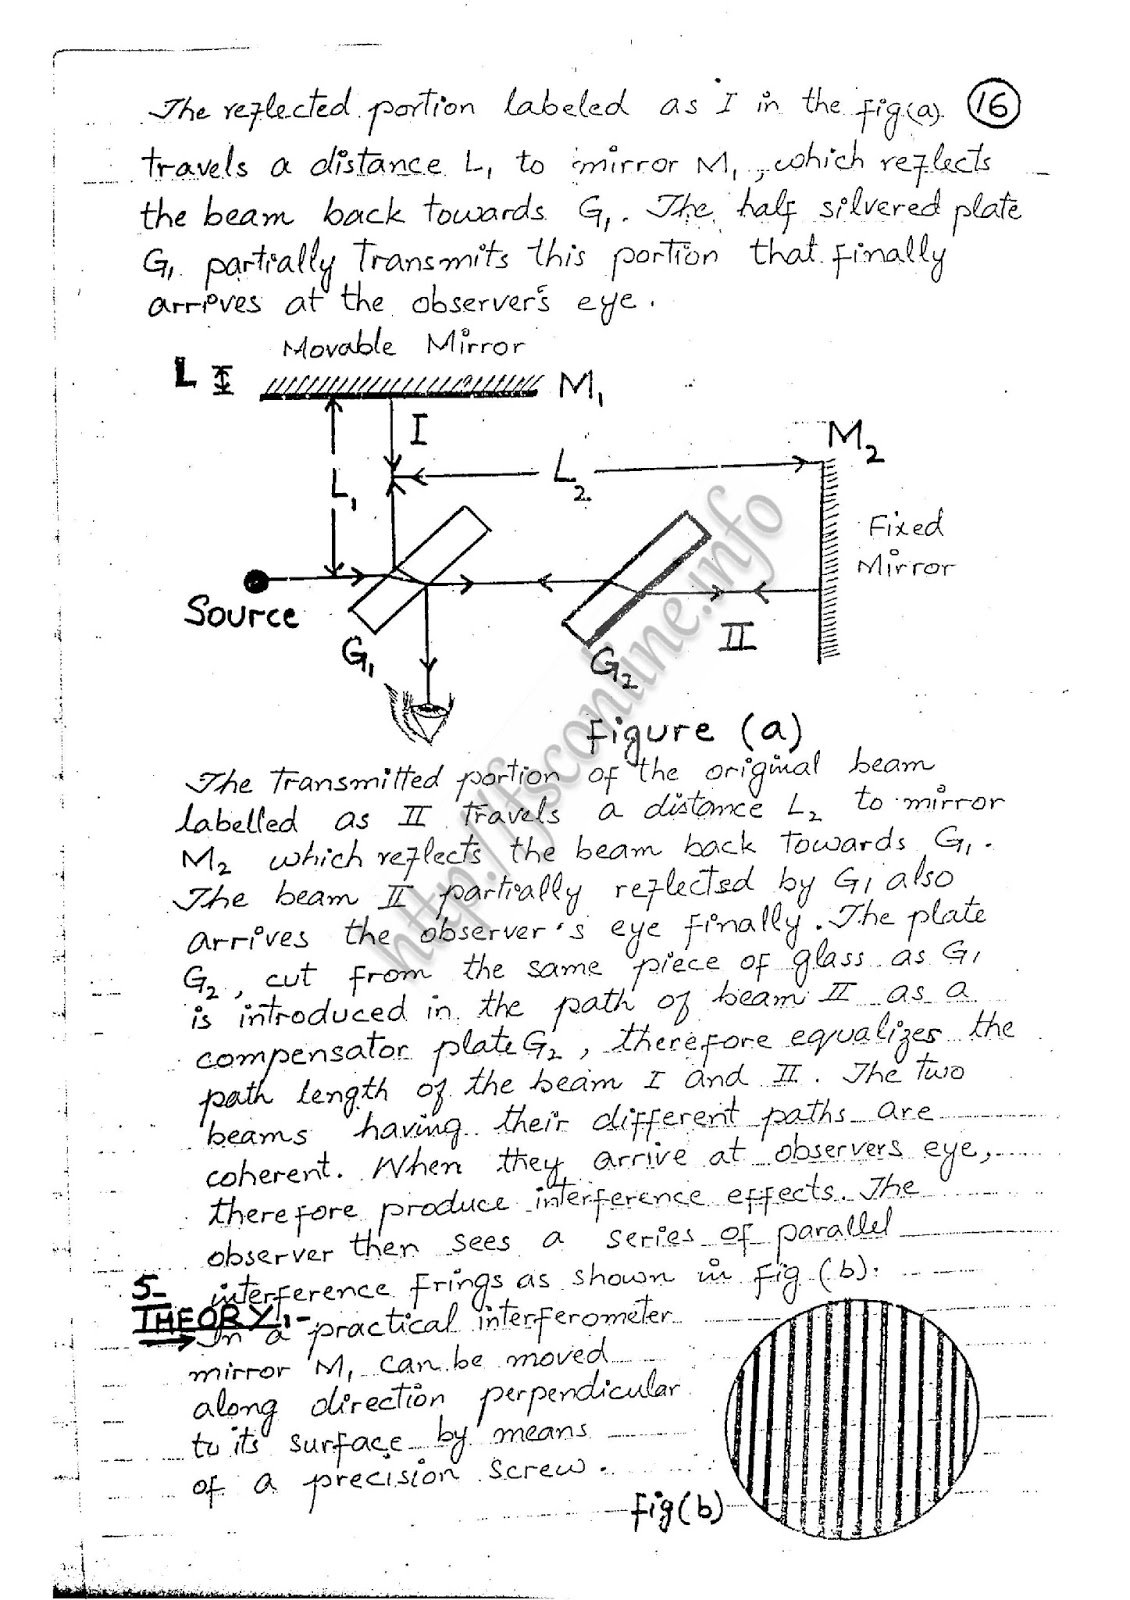 The reflected portion labeled as I in the fig(a) 16
travels a distance L₁ to mirror M₁, which reflects
the beam back towards G₁. The half silvered plate
G₁ partially Transmits this portion that finally
arrives at the observer's eye.
Movable Mirror
L
M₁
I
M₂
L₂
L₁
Fixed
Mirror
Source
G₁
II
G₂
Figure (a)
The Transmitted portion of the original beam
labelled as II Travels a distance L₂ to mirror
M₂ which reflects the beam back Towards G₁.
The beam II partially reflected by G₁ also
arrives the observer's eye finally. The plate
G₂, cut from the same piece of glass as G₁
is introduced in the path of beam II as a
compensator plate G₂, therefore equalizes the
path length of the beam I and II. The Two
beams having their different paths are
coherent. When they arrive at observers eye,
therefore produce interference effects. The
observer then sees a series of parallel
interference Frings as shown in fig (b).
5-
THEORY:-
In a practical interferometer
mirror M₁ can be moved
along direction perpendicular
to its surface by means
of a precision screw.
fig(b)
http://fsconline.info